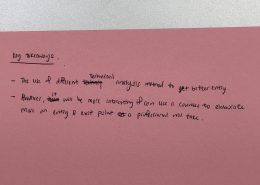 Key takeaways.
- The use of different Technical analysis method to get better entry.
- However, it will be more interesting if can use a counter to elaborate
more on entry & exit point as a professional will take.